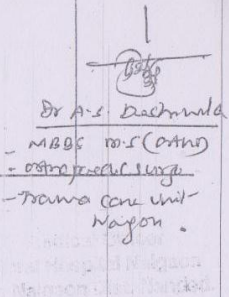 Dr A.S. Deshmukh
- MBBS M.S (Ortho)
- Orthopaedic surge
- Trauma Care Unit-
Naigon.